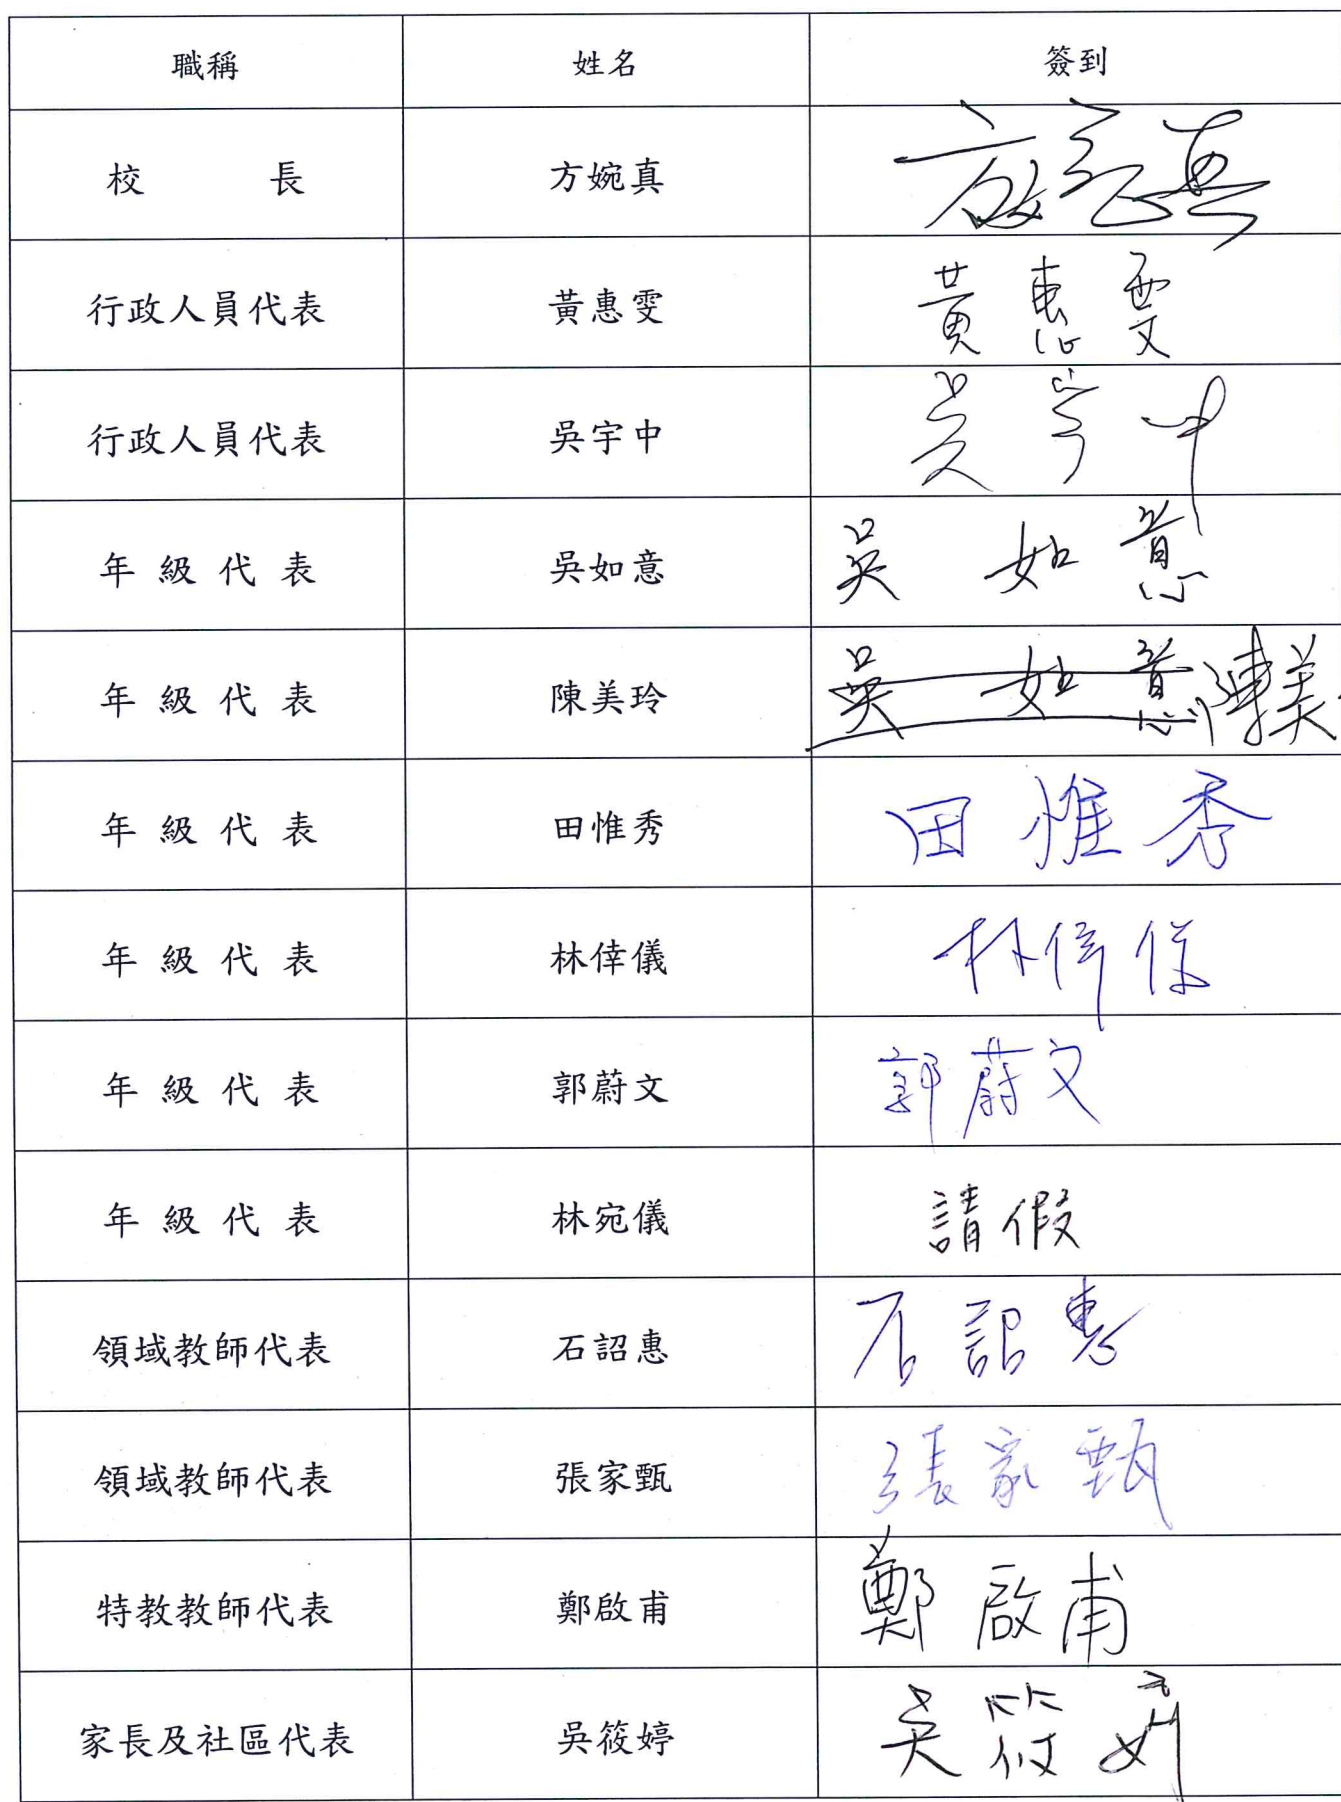 職稱 姓名 簽到
校 長 方婉真 方婉真
行政人員代表 黃惠雯 黃惠雯
行政人員代表 吳宇中 吳宇中
年級代表 吳如意 吳如意
年級代表 陳美玲 吳如意 陳美
年級代表 田惟秀 田惟秀
年級代表 林倖儀 林倖儀
年級代表 郭蔚文 郭蔚文
年級代表 林宛儀 請假
領域教師代表 石詔惠 石詔惠
領域教師代表 張家甄 張家甄
特教教師代表 鄭啟甫 鄭啟甫
家長及社區代表 吳筱婷 吳筱婷